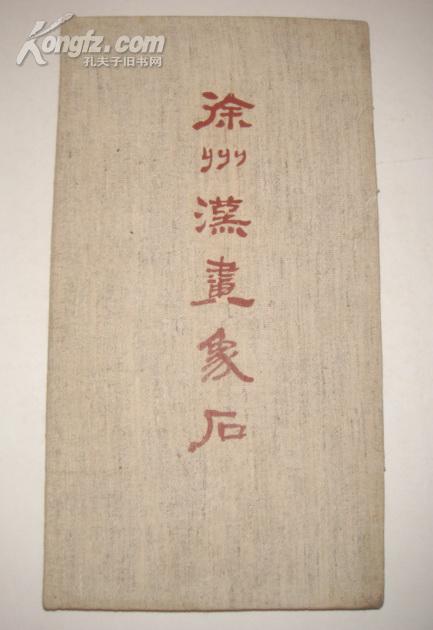 Kongfz.com
孔夫子旧书网
徐州漢畫象石